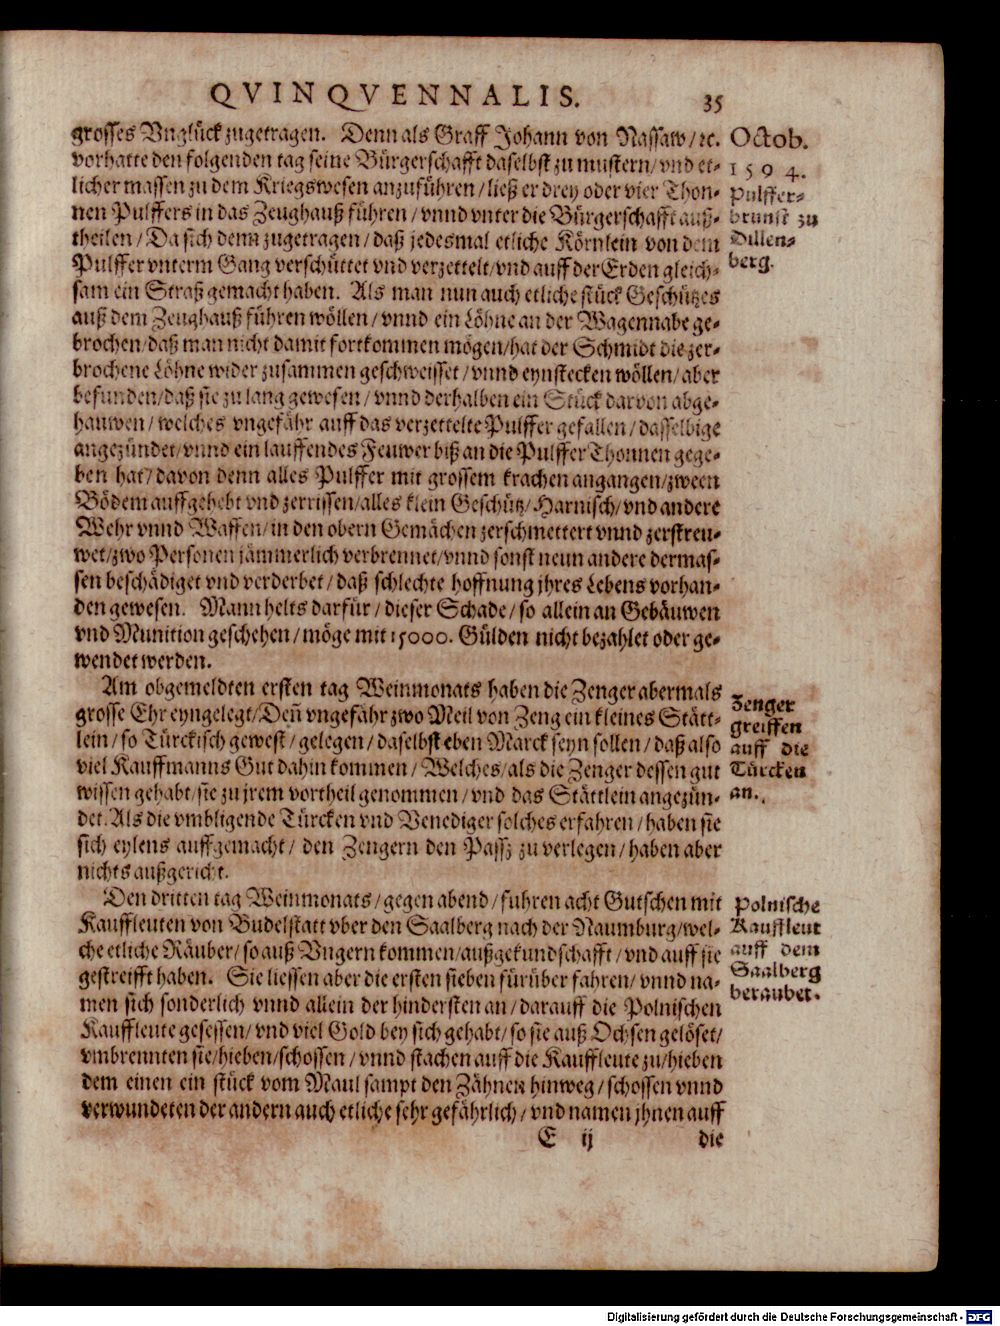 QVINQVENNALIS. 35
grosses Vnglück zugetragen. Denn als Graff Johann von Nassaw/ ꝛc.
vorhatte den folgenden tag seine Bürgerschafft daselbst zu mustern/ vnd et-
licher massen zu dem Kriegswesen anzuführen/ ließ er drey oder vier Thon-
nen Pulffers in das Zeughauß führen/ vnnd vnter die Bürgerschafft auß-
theilen/ Da sich denn zugetragen/ daß jedesmal etliche Körnlein von dem
Pulffer vnterm Gang verschüttet vnd verzettelt/ vnd auff der Erden gleich-
sam ein Straß gemacht haben. Als man nun auch etliche stück Geschützes
auß dem Zeughauß führen wöllen/ vnnd ein Löhne an der Wagennabe ge-
brochen/ daß man nicht damit fortkommen mögen/ hat der Schmidt die zer-
brochene Löhne wider zusammen geschweisset/ vnnd eynstecken wöllen/ aber
befunden/ daß sie zu lang gewesen/ vnnd derhalben ein Stück darvon abge-
hauwen/ welches vngefähr auff das verzettelte Pulffer gefallen/ dasselbige
angezündet/ vnnd ein lauffendes Feuwer biß an die Pulffer Thonnen gege-
ben hat/ davon denn alles Pulffer mit grossem krachen angangen/ zween
Bödem auffgehebt vnd zerrissen/ alles klein Geschütz/ Harnisch/ vnd andere
Wehr vnnd Waffen/ in den obern Gemächen zerschmettert vnnd zerstreu-
wet/ zwo Personen jämmerlich verbrennet/ vnnd sonst neun andere dermas-
sen beschädiget vnd verderbet/ daß schlechte hoffnung jhres Lebens vorhan-
den gewesen. Mann helts darfür/ dieser Schade/ so allein an Gebäuwen
vnd Munition geschehen/ möge mit 15000. Gülden nicht bezahlet oder ge-
wendet werden.
Am obgemeldten ersten tag Weinmonats haben die Zenger abermals
grosse Ehr eyngelegt/ Deñ vngefähr zwo Meil von Zeng ein kleines Stätt-
lein/ so Türckisch gewest/ gelegen/ daselbst eben Marck seyn sollen/ daß also
viel Kauffmanns Gut dahin kommen/ Welches/ als die Zenger dessen gut
wissen gehabt/ sie zu jrem vortheil genommen/ vnd das Stättlein angezün-
det. Als die vmbligende Türcken vnd Venediger solches erfahren/ haben sie
sich eylens auffgemacht/ den Zengern den Passz zu verlegen/ haben aber
nichts außgericht.
Den dritten tag Weinmonats/ gegen abend/ fuhren acht Gutschen mit
Kauffleuten von Budelstatt vber den Saalberg nach der Naumburg/ wel-
che etliche Räuber/ so auß Vngern kommen/ außgekundschafft/ vnd auff sie
gestreifft haben. Sie liessen aber die ersten sieben fürüber fahren/ vnnd na-
men sich sonderlich vnnd allein der hindersten an/ darauff die Polnischen
Kauffleute gesessen/ vnd viel Gold bey sich gehabt/ so sie auß Ochsen gelöset/
vmbrennten sie/ hieben/ schossen/ vnnd stachen auff die Kauffleute zu/ hieben
dem einen ein stück vom Maul sampt den Zähnen hinweg/ schossen vnnd
verwundeten der andern auch etliche sehr gefährlich/ vnd namen jhnen auff
E ij die
Octob.
1594.
Pulffer-
brunst zu
Dillen-
berg.
Zenger
greiffen
auff die
Türcken
an.
Polnische
Kauffleut
auff dem
Saalberg
beraubet.
Digitalisierung gefördert durch die Deutsche Forschungsgemeinschaft - DFG